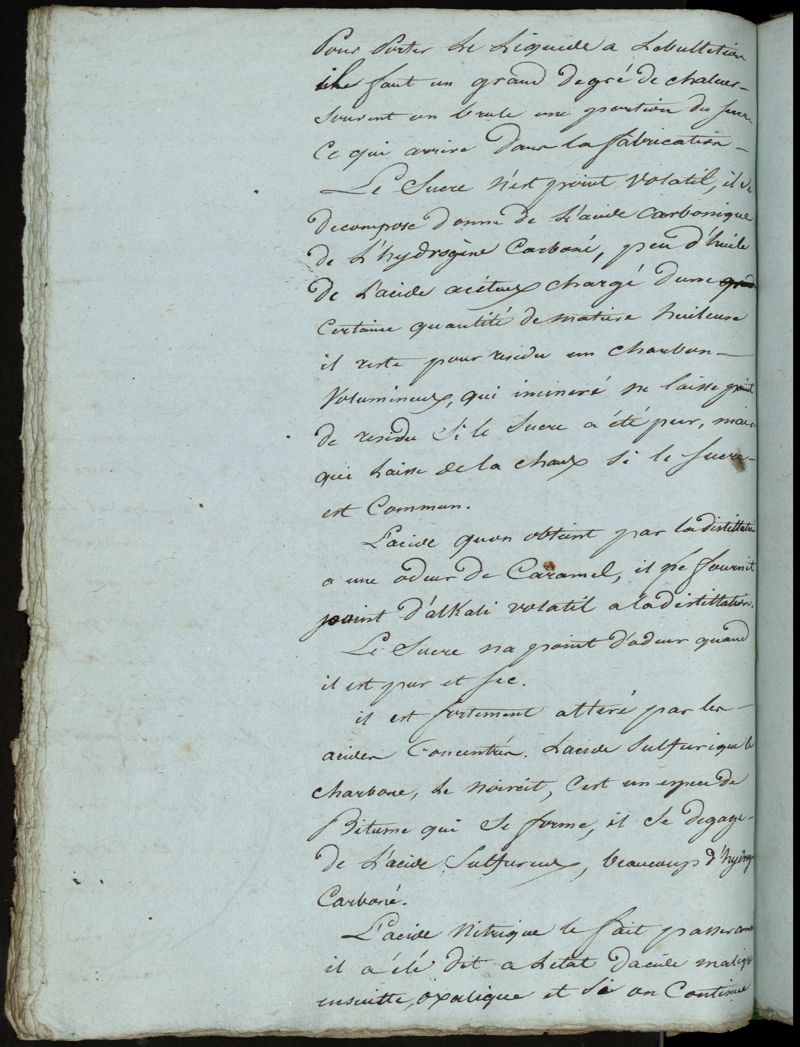 Pour Porter Le Liquide a Lebullition
il faut un grand degré de chaleur -
souvent on brule une portion du sucre
Ce qui arrive dans la fabrication -
Le Sucre n'est point Volatil, il se
decompose donne de L'acide Carbonique
de L'hydrogène Carboné, peu d'huile
de L'acide acéteux chargé d'une
Certaine quantité de matiere huileuse
il reste pour residu un charbon -
Volumineux, qui incineré ne laisse point
de residu Si le Sucre a été pur, mais
qui Laisse de la chaux Si le Sucre -
est Commun.
L'acide qu'on obtient par la distillation
a une odeur de Caramel, il ne fournit
point d'alkali volatil a la distillation.
Le Sucre n'a point d'odeur quand
il est pur et sec.
il est fortement altéré par les -
acides Concentrés. L'acide Sulfurique le
charbone, Le Noircit, C'est un espece de
Bitume qui Se forme, il Se degage -
de L'acide Sulfureux, beaucoup d'hydrog
Carboné.
L'acide Nitrique le fait passer comme
il a été dit a L'etat d'acide malique
ensuitte, oxalique et Si on Continue